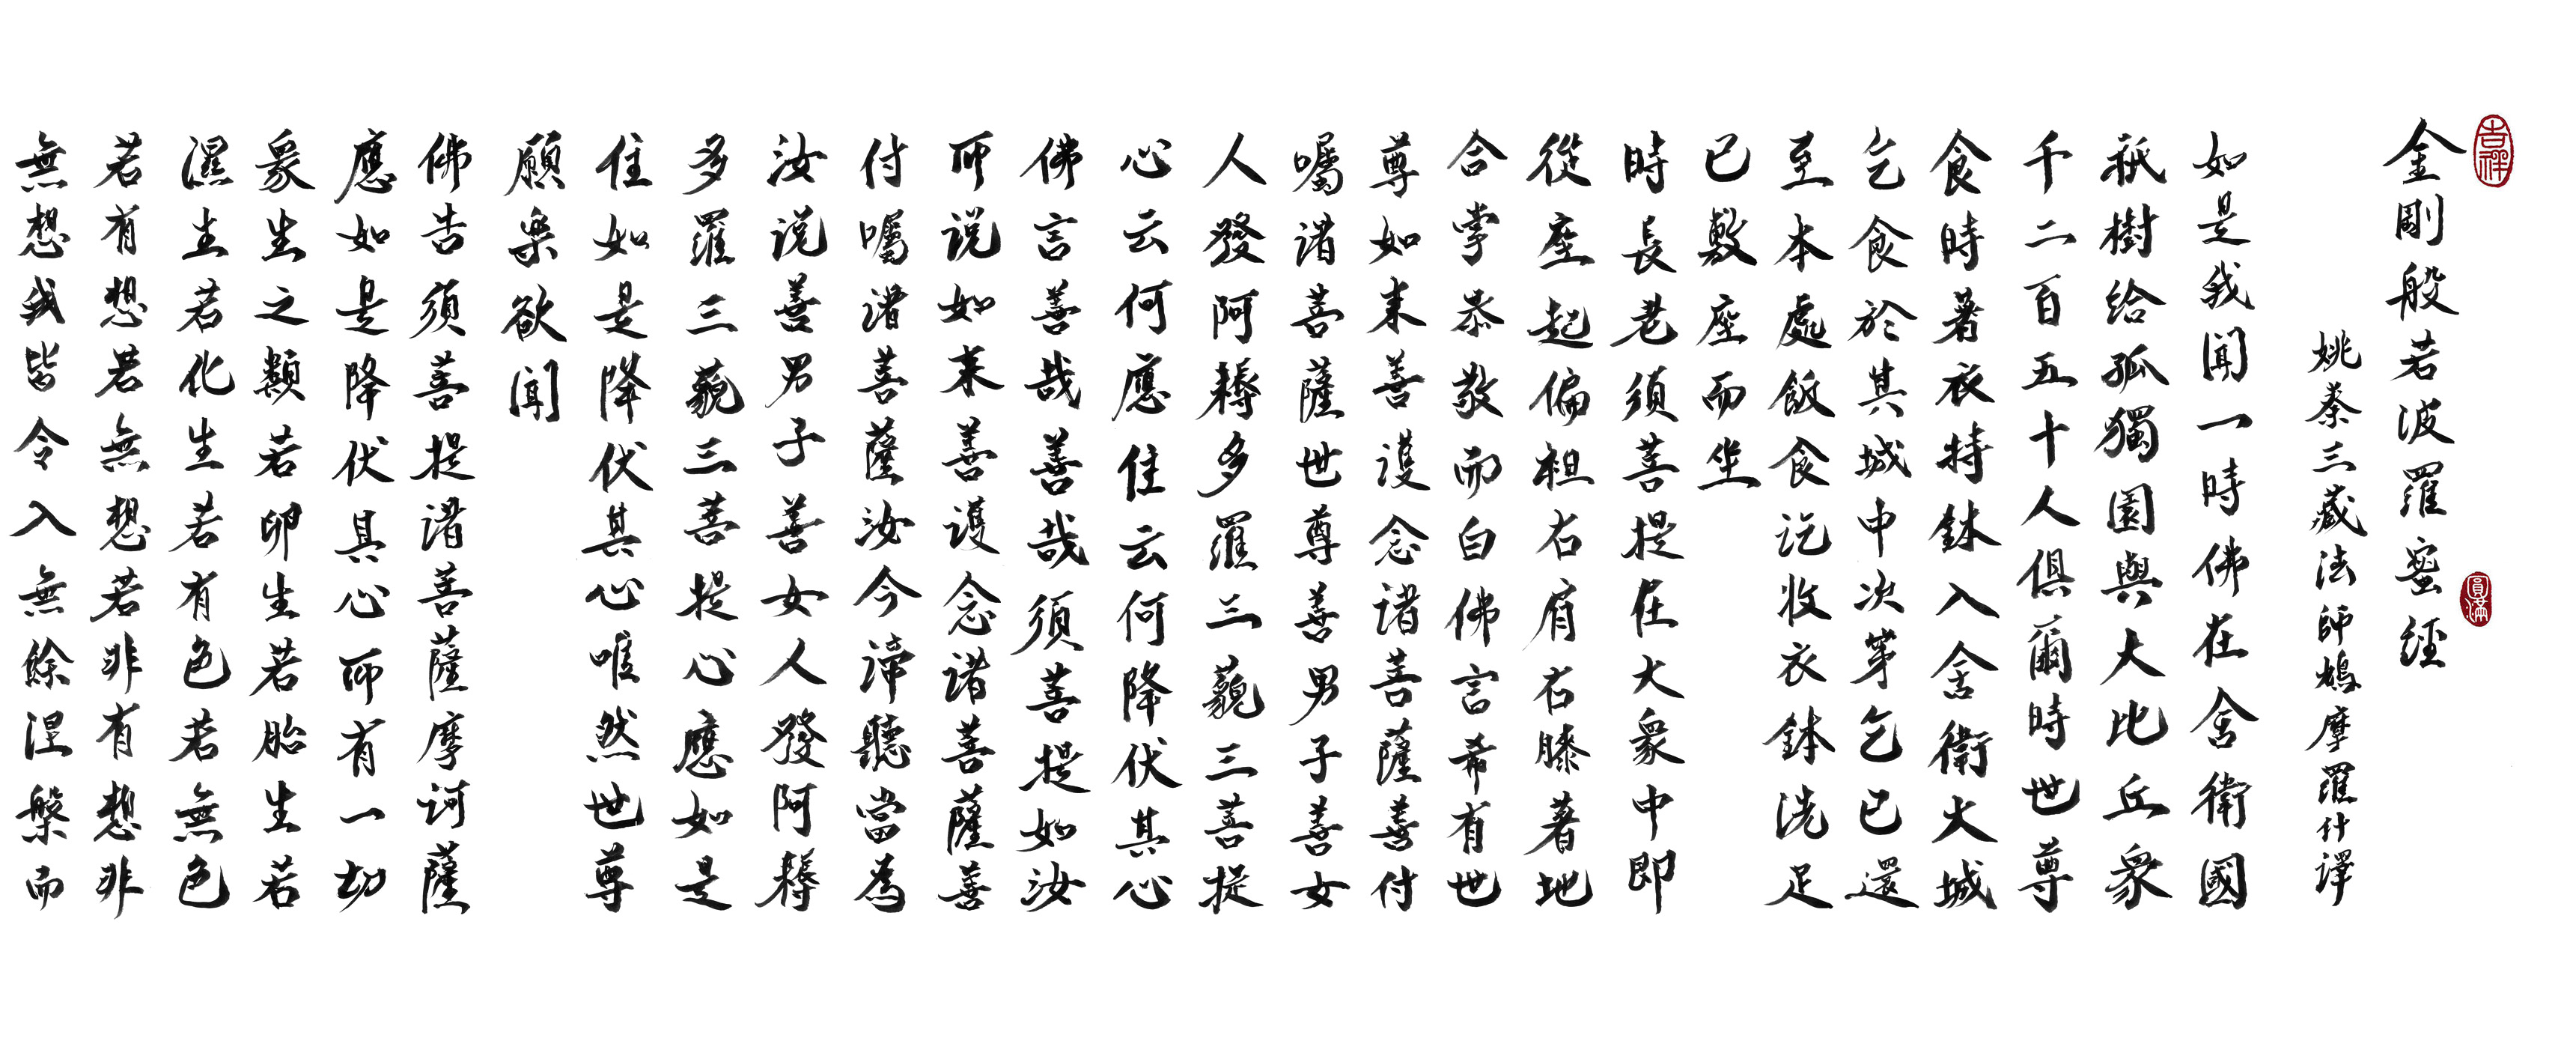 吉祥
金剛般若波羅蜜經
圓滿
姚秦三藏法師鳩摩羅什譯
如是我聞一時佛在舍衛國
祇樹給孤獨園與大比丘眾
千二百五十人俱爾時世尊
食時著衣持鉢入舍衛大城
乞食於其城中次第乞已還
至本處飯食訖收衣鉢洗足
已敷座而坐
時長老須菩提在大眾中即
從座起偏袒右肩右膝著地
合掌恭敬而白佛言希有世
尊如来善護念諸菩薩善付
囑諸菩薩世尊善男子善女
人發阿耨多羅三藐三菩提
心云何應住云何降伏其心
佛言善哉善哉須菩提如汝
所说如来善護念諸菩薩善
付囑諸菩薩汝今諦聽當為
汝说善男子善女人發阿耨
多羅三藐三菩提心應如是
住如是降伏其心唯然世尊
願樂欲聞
佛告須菩提諸菩薩摩訶薩
應如是降伏其心所有一切
眾生之類若卵生若胎生若
濕生若化生若有色若無色
若有想若無想若非有想非
無想我皆令入無餘涅槃而